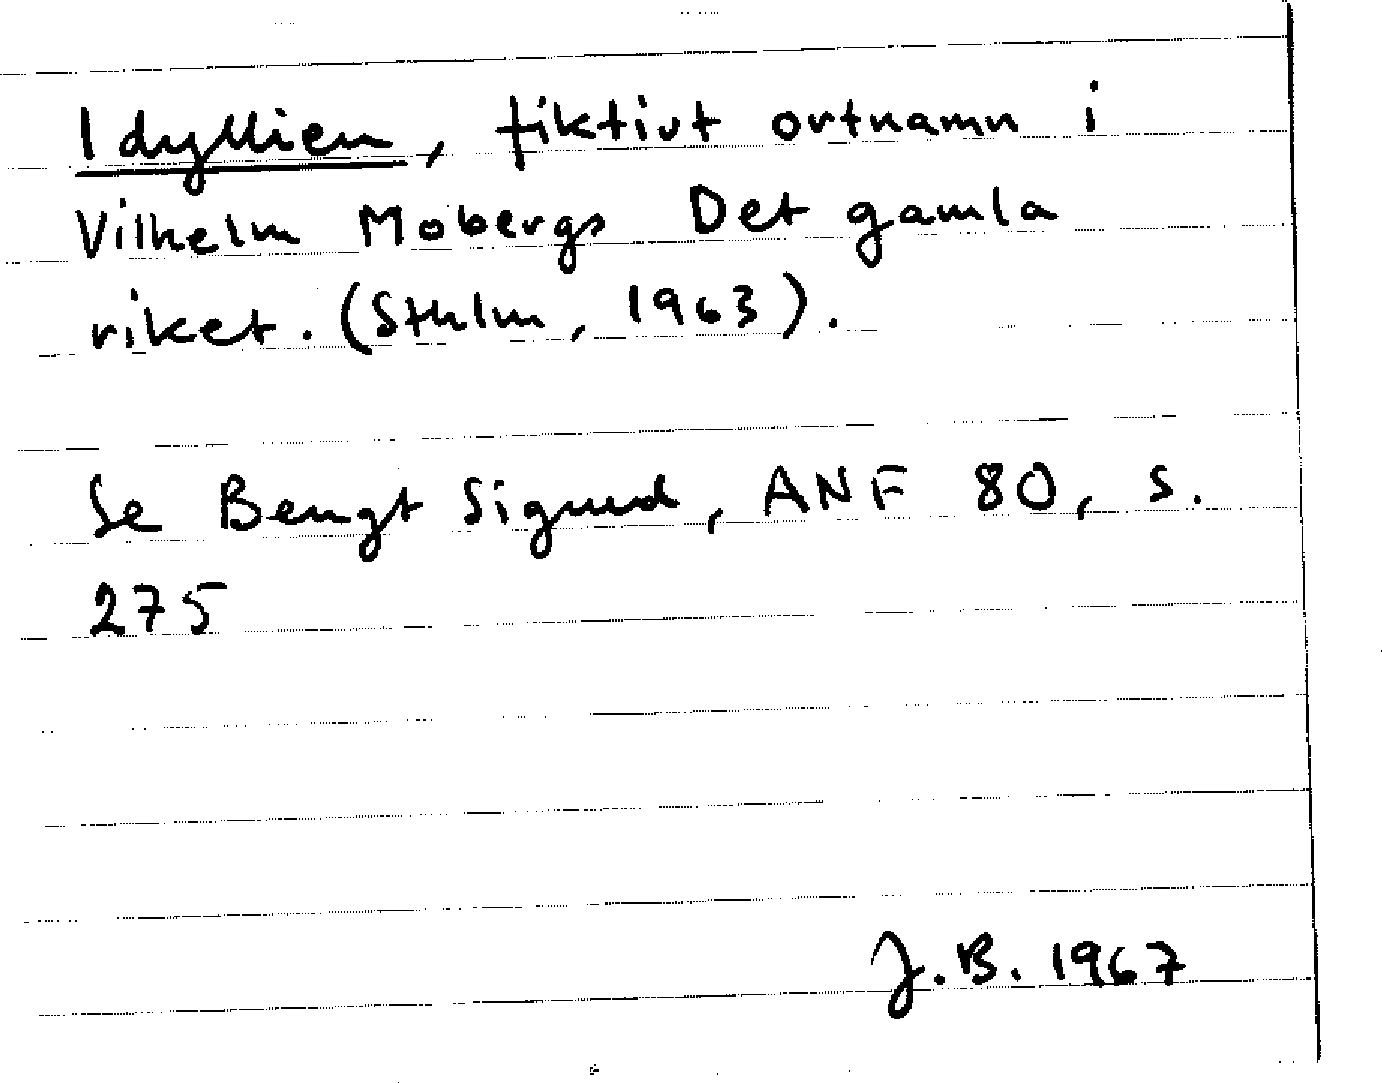 Idyllien, fiktivt ortnamn i
Vilhelm Mobergs Det gamla
riket. (Sthlm, 1963).
Se Bengt Sigurd, ANF 80, s.
275
J.B. 1967